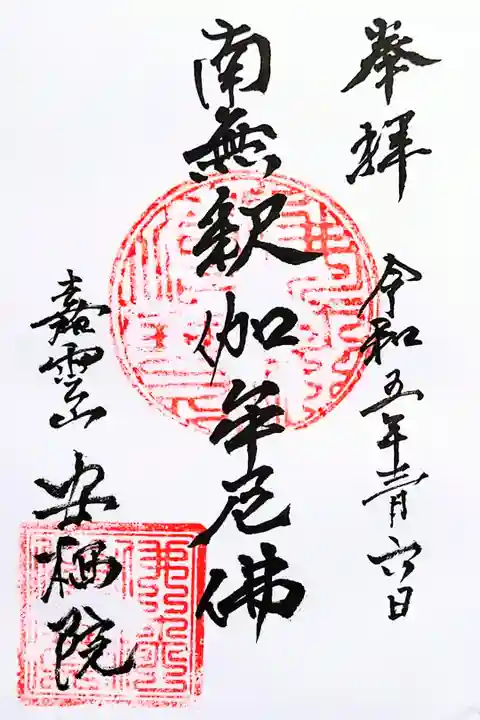 奉拝
令和五年三月六日
南無釈伽牟尼佛
嘉雲山
安栖院